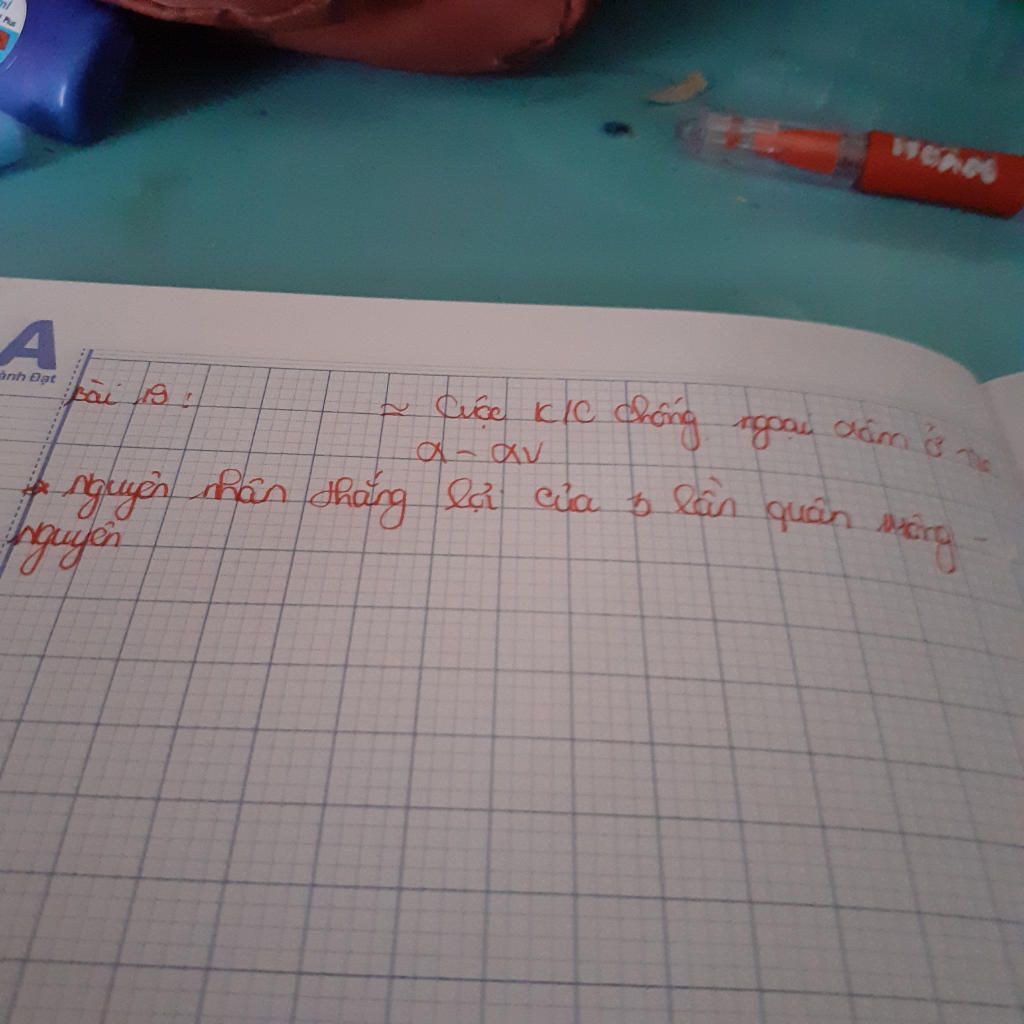 Plus
A
ành Đạt
Bài 19 : ~ Cuộc K/C chống ngoại xâm ở
X - XV
* nguyên nhân thắng lợi của 3 lần quân mông -
nguyên